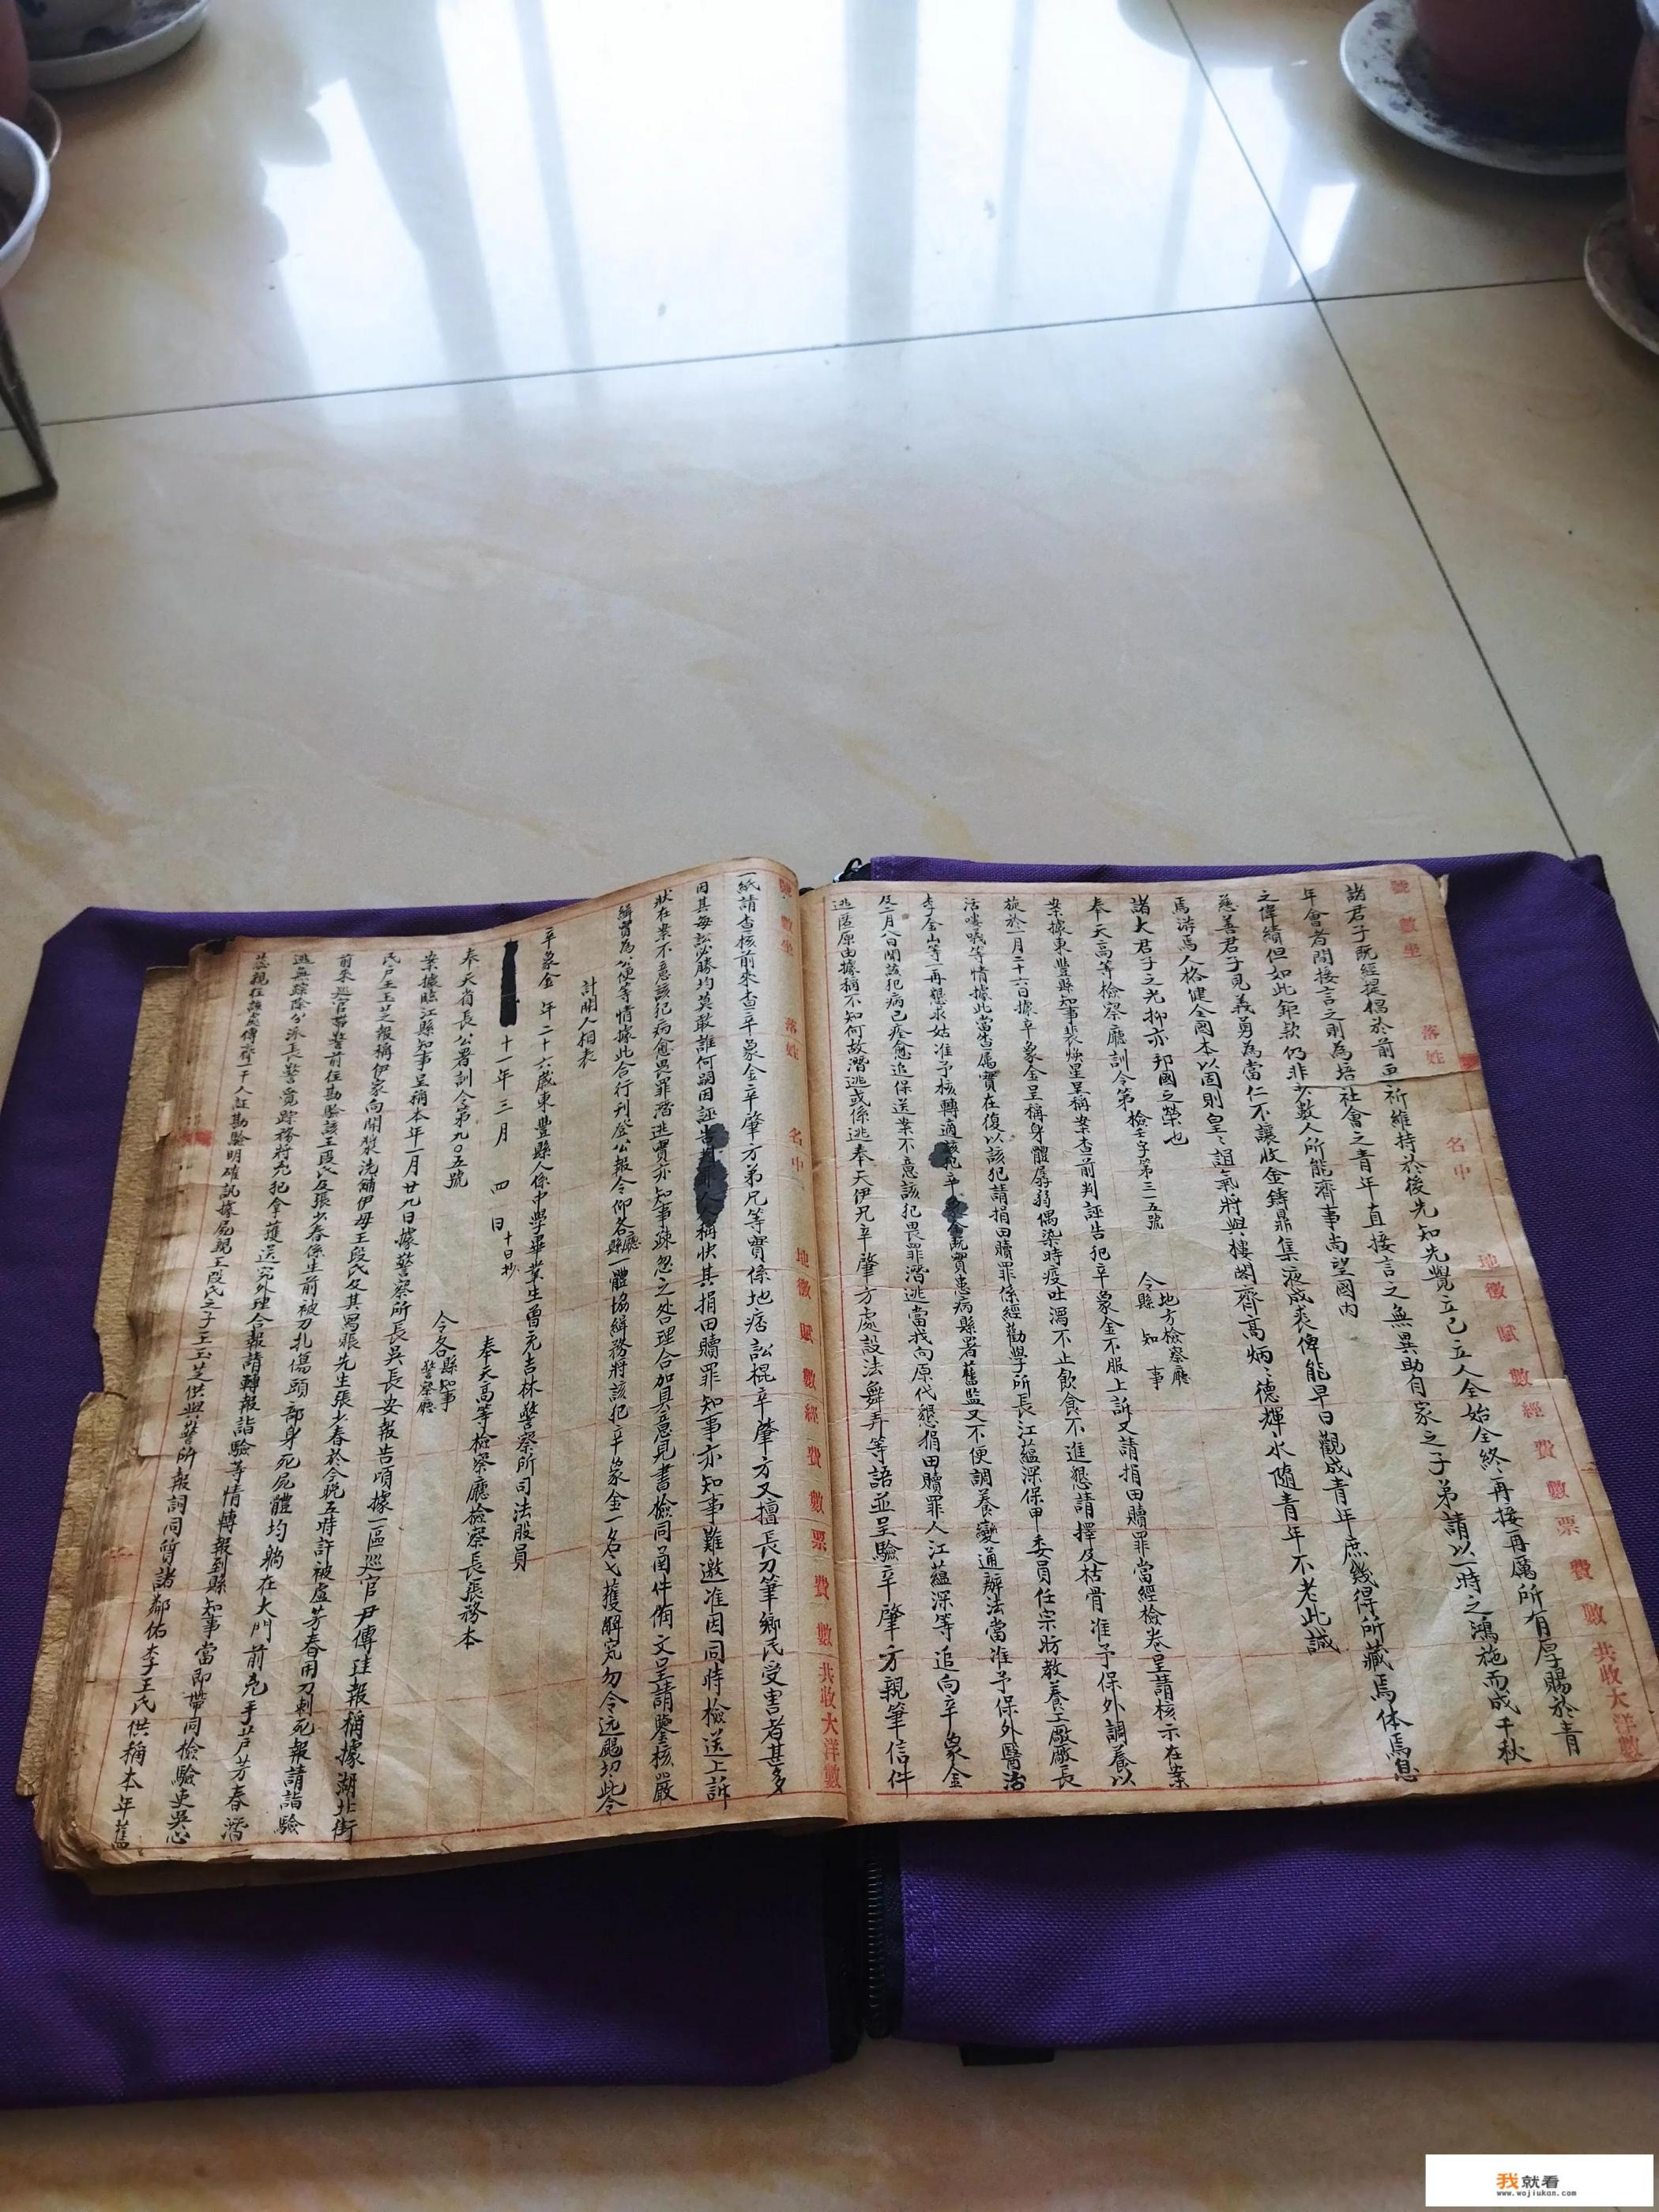 號 數坐 落姓 名中 地徵賦數經費數票費數共收大洋數
諸君子既經提倡於前亟祈維持於後先知先覺立己立人全始全終再接再厲所有厚賜於青
年會者間接言之則為培社會之青年直接言之無異助自家之子弟請以一時之鴻施而成千秋
之偉績但如此鉅款仍非少數人所能濟事尚望國內
慈善君子見義勇為當仁不讓收金鑄鼎集液成裘俾能早日觀成青年庶幾得所藏焉体焉息
焉游焉人格健全國本以固則皇皇誼氣將與樓閣齊高炳炳德輝永隨青年不老此誠
諸大君子之光抑亦邦國之榮也
奉天高等檢察廳訓令第檢壬字第三一五號 令地方檢察廳縣知事
案據東豐縣知事裴煥星呈稱案查前判誣告犯辛象金不服上訴又請捐田贖罪當經檢卷呈請核示在案
旋於一月二十六日據辛象金呈稱身體孱弱偶染時疫吐瀉不止飲食不進懇請擇及枯骨准予保外調養以
活嘍嘰等情據此當查屬實在復以該犯請捐田贖罪係經勸學所長江蘊深保甲委員任宗昉教養工廠廠長
李金山等一再懇求姑准予核轉適該犯辛象金既實患病縣署舊監又不便調養變通辦法當准予保外醫治
及二月八日聞該犯病已痊愈追保送案不意該犯畏罪潛逃當找向原代懇捐田贖罪人江蘊深等追向辛象金
逃匿原由據稱不知何故潛逃或係逃奉天伊兄辛肇方處設法舞弄等語並呈驗辛肇方親筆信件
號 數坐 落姓 名中 地徵賦數經費數票費數共收大洋數
一紙請查核前來查辛象金辛肇方弟兄等實係地痞訟棍辛肇方又擅長刀筆鄉民受害者甚多
因其每訟必勝均莫敢誰何嗣因誣告人人稱快其捐田贖罪知事亦知事難邀准因同時檢送上訴
狀在案不意該犯病愈畏罪潛逃實亦知事疎忽之咎理合加具意見書檢同函件備文呈請鑒核嚴
緝實為公便等情據此合行刊登公報令仰各廳縣一體協緝務將該犯辛象金一名弋獲解究勿令遠颺切切此令
計開人相表
辛象金 年二十六歲東豐縣人係中學畢業生曾充吉林警察所司法股員
十一年三月 四 日十日抄 奉天高等檢察廳檢察長張務本
奉天省長公署訓令第九〇五號 令各縣知事警察廳
案據臨江縣知事呈稱本年一月廿九日據警察所長吳長安報告頃據一區巡官尹傳珪報稱據湖北街
民戶王玉芝報稱伊家向開漿洗舖伊母王段氏及其寫張先生張少春於今晚五時許被盧芳春用刀刺死報請詣驗
前來巡官帶警前往勘驗該王段氏及張少春係生前被刀扎傷頭部身死屍體均躺在大門前兇手盧芳春潛
逃無踪除分派長警覓踪務將兇犯拿獲送究外理合報請轉報詣驗等情轉報到縣知事當即帶同檢驗吏吳心
恭親往該處傳齊一干人証勘驗明確訊據屍親王段氏之子王玉芝供與警所報詞同質諸鄰佑李王氏供稱本年舊
我就看
www.wojiukan.com